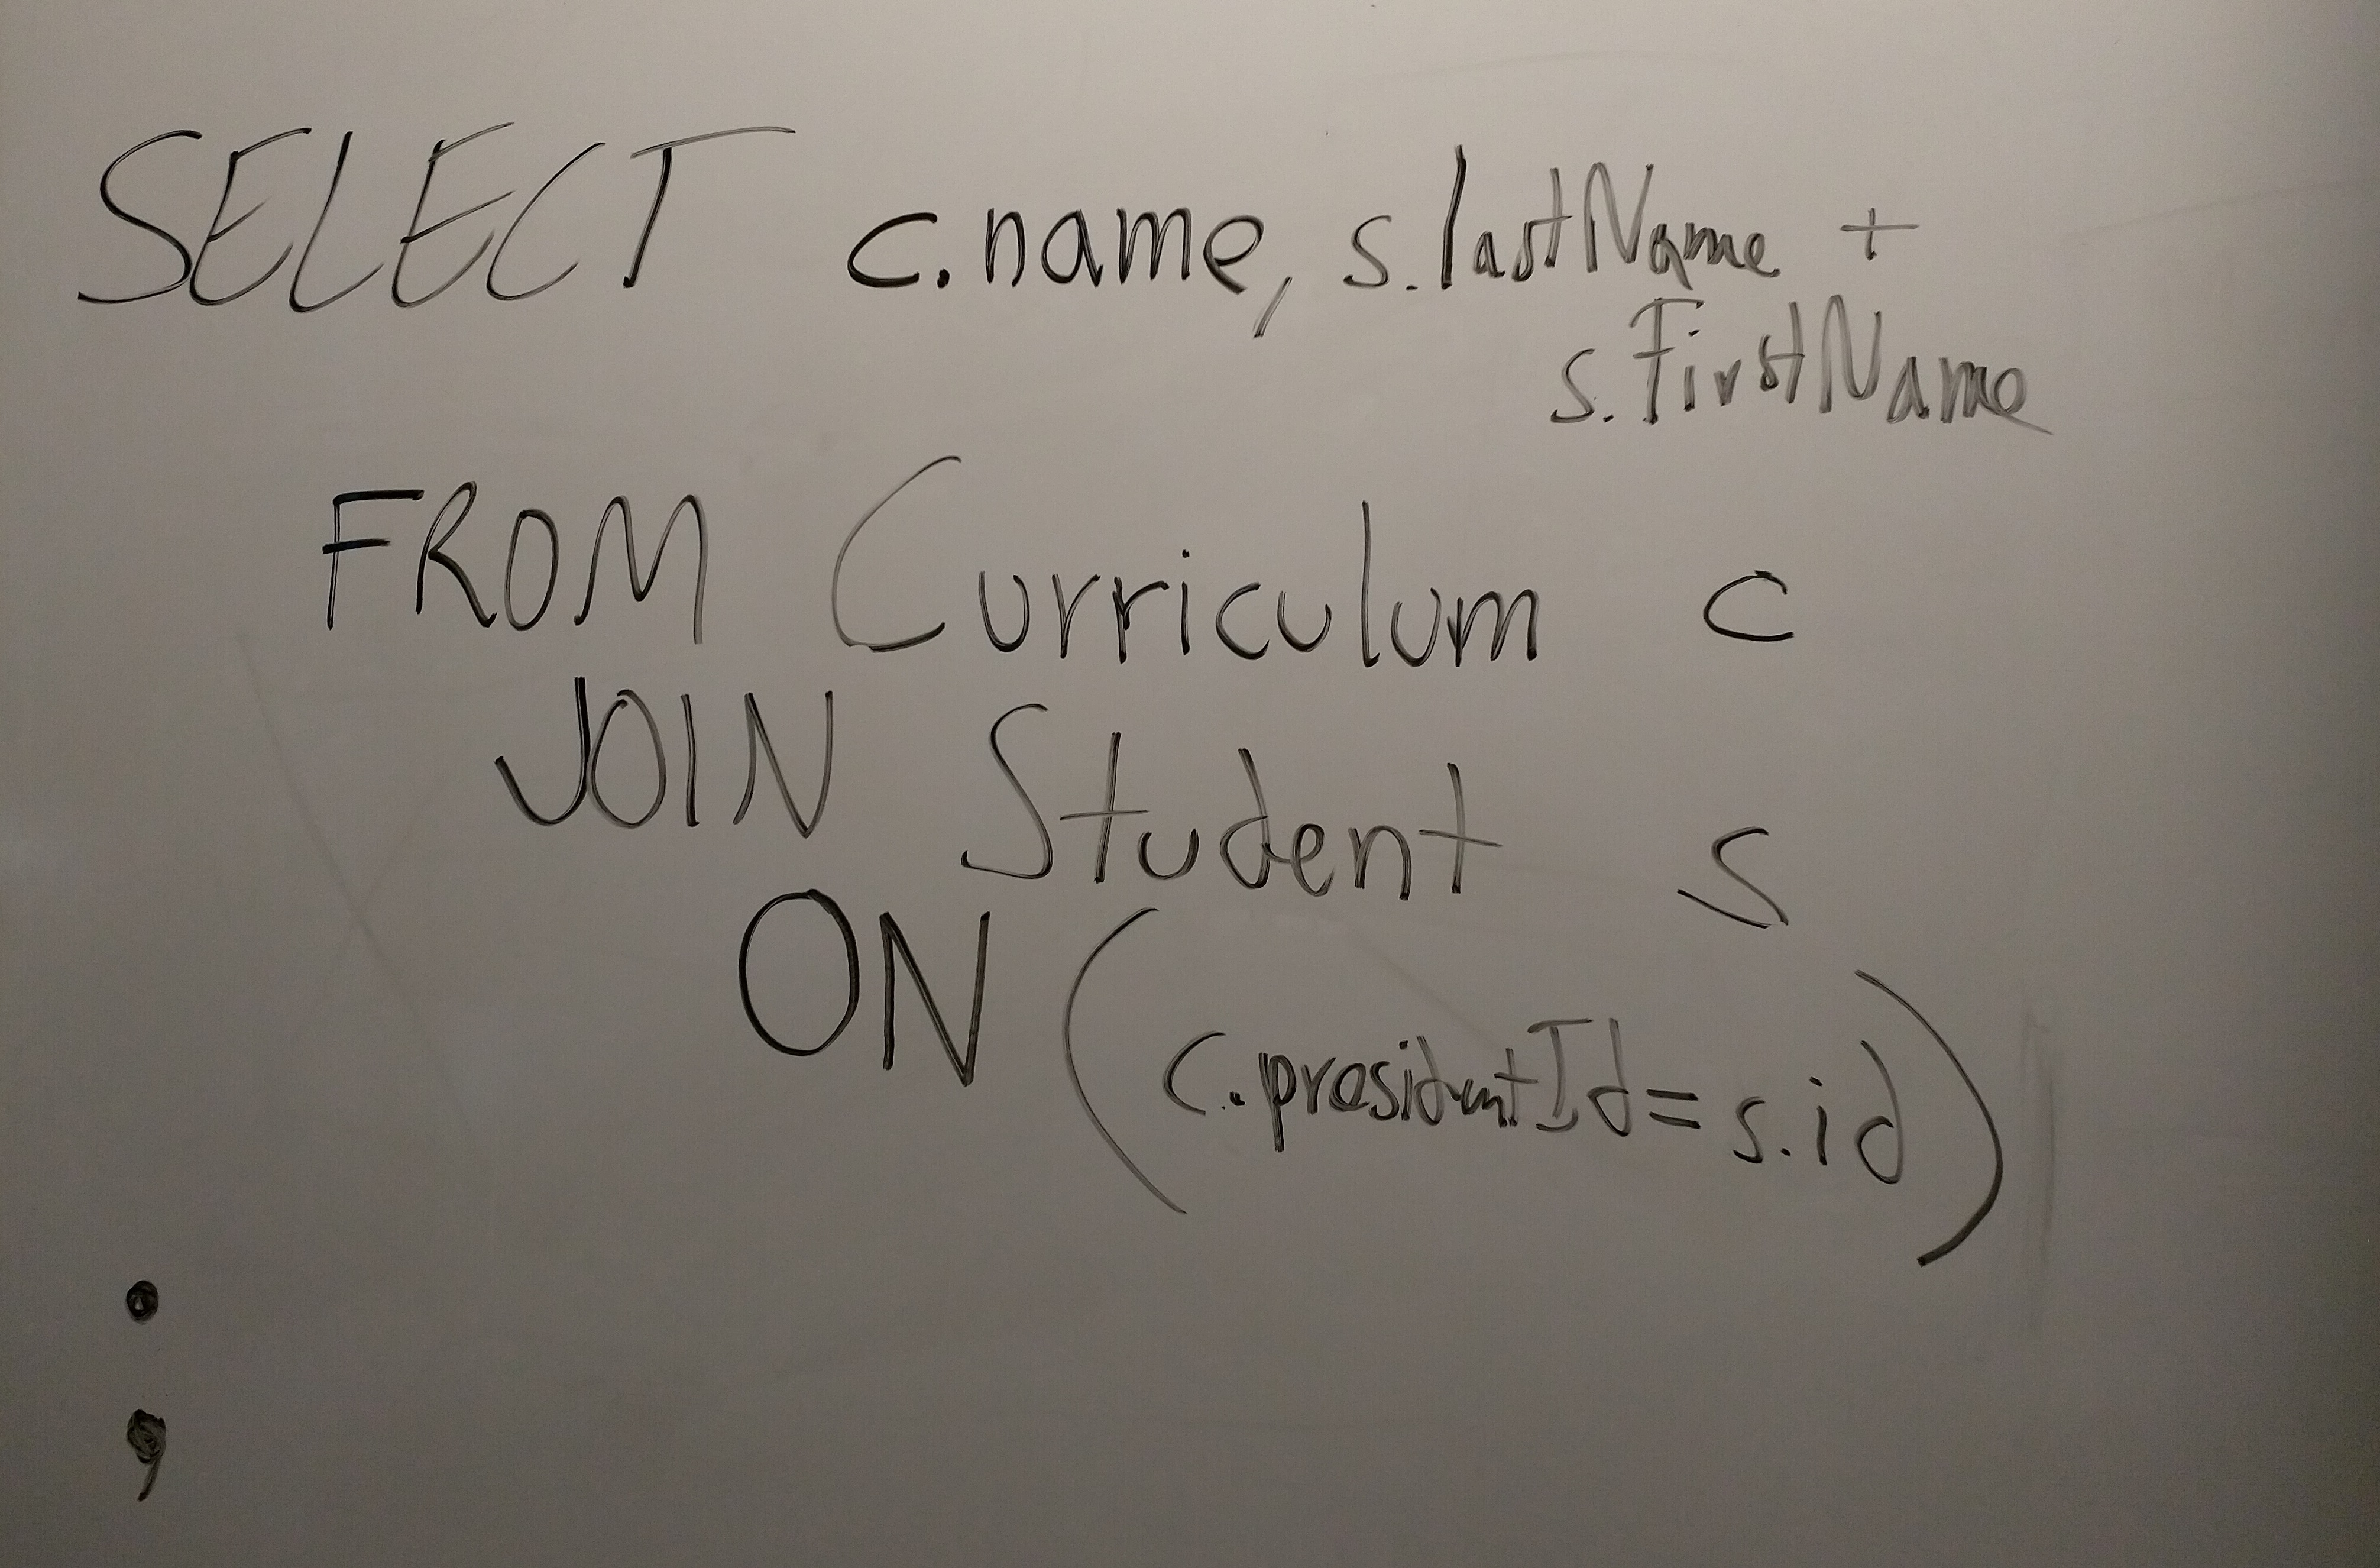 SELECT c.name, s.lastName +
s.firstName
FROM Curriculum c
JOIN Student s
ON (c.presidentId = s.id)
;